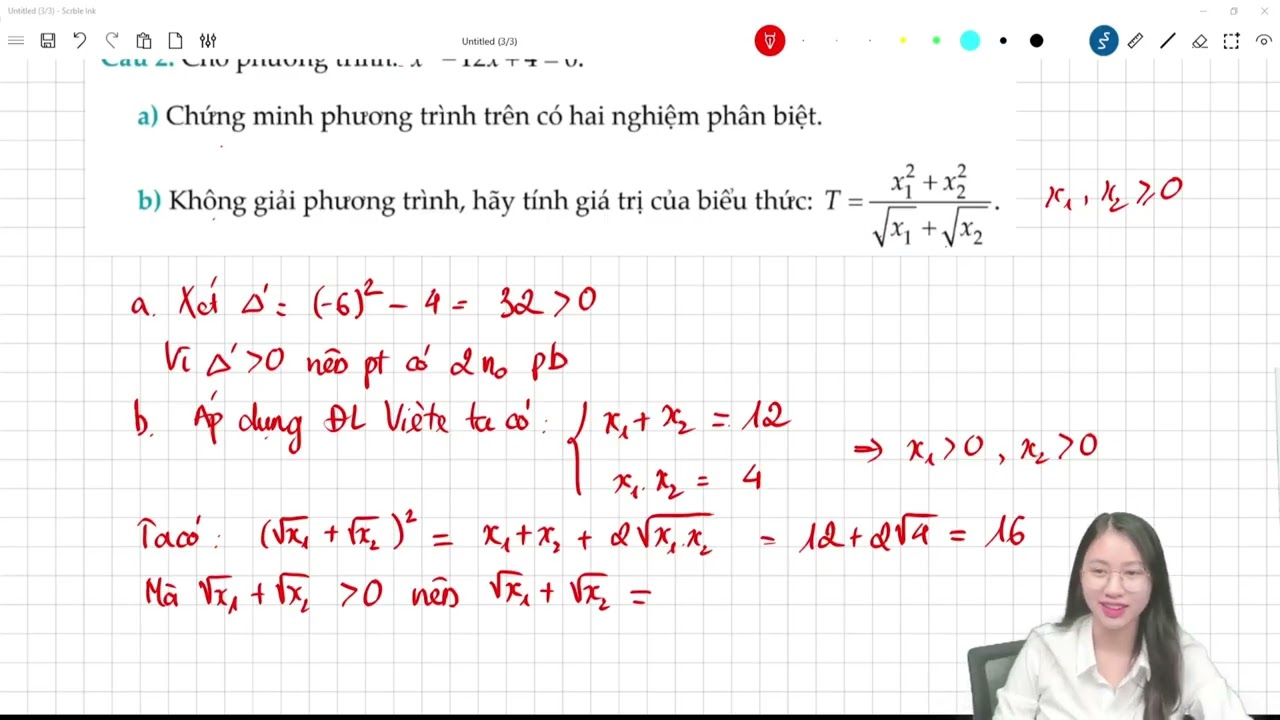 Untitled (3/3) - Scrble Ink
Untitled (3/3)
Câu 2. Cho phương trình: x² − 12x + 4 = 0.
a) Chứng minh phương trình trên có hai nghiệm phân biệt.
b) Không giải phương trình, hãy tính giá trị của biểu thức: T = (x₁² + x₂²)/(√x₁ + √x₂). x₁, x₂ ⩾ 0
a. Xét Δ' = (-6)² - 4 = 32 > 0
Vì Δ' > 0 nên pt có 2 n₀ pb
b. Áp dụng ĐL Viète ta có: { x₁ + x₂ = 12
x₁. x₂ = 4 ⇒ x₁ > 0, x₂ > 0
Ta có: (√x₁ + √x₂)² = x₁ + x₂ + 2√x₁.x₂ = 12 + 2√4 = 16
Mà √x₁ + √x₂ > 0 nên √x₁ + √x₂ =